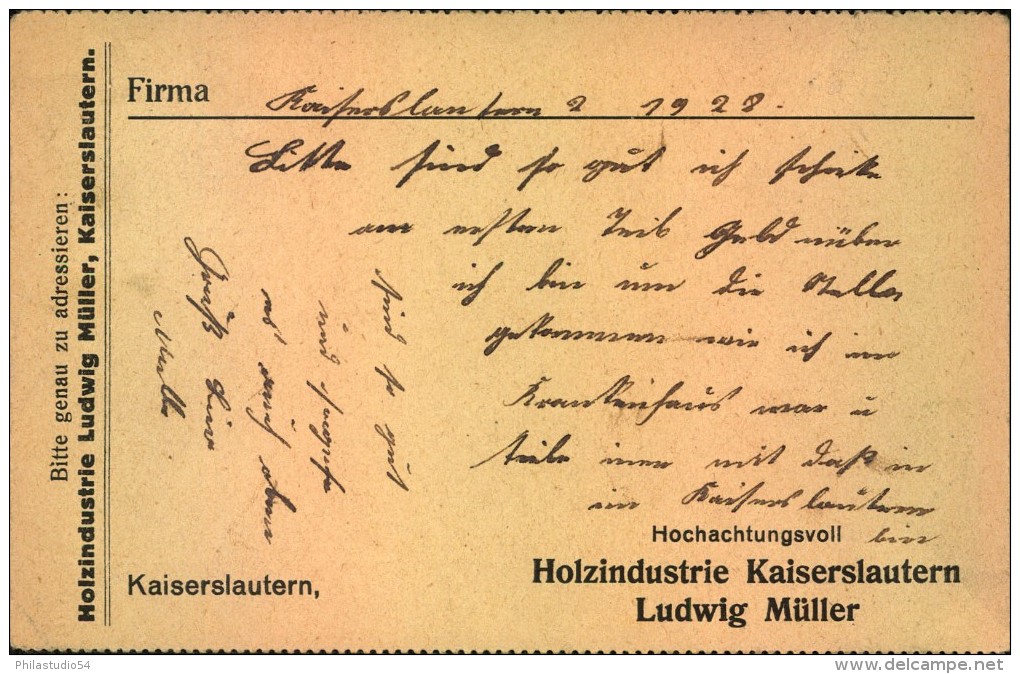 Bitte genau zu adressieren:
Holzindustrie Ludwig Müller, Kaiserslautern.
Firma
Kaiserslautern 2 1928.
Bitte sind so gut ich schicke
am ersten Teil Geld
ich bin um die Stelle
gekommen wie ich im
Krankenhaus war u
teile mit daß
in Kaiserslautern
bin
sind so gut
und
es auch
Gruß
Hochachtungsvoll
Holzindustrie Kaiserslautern
Ludwig Müller
Kaiserslautern,
Philastudio54
www.delcampe.net